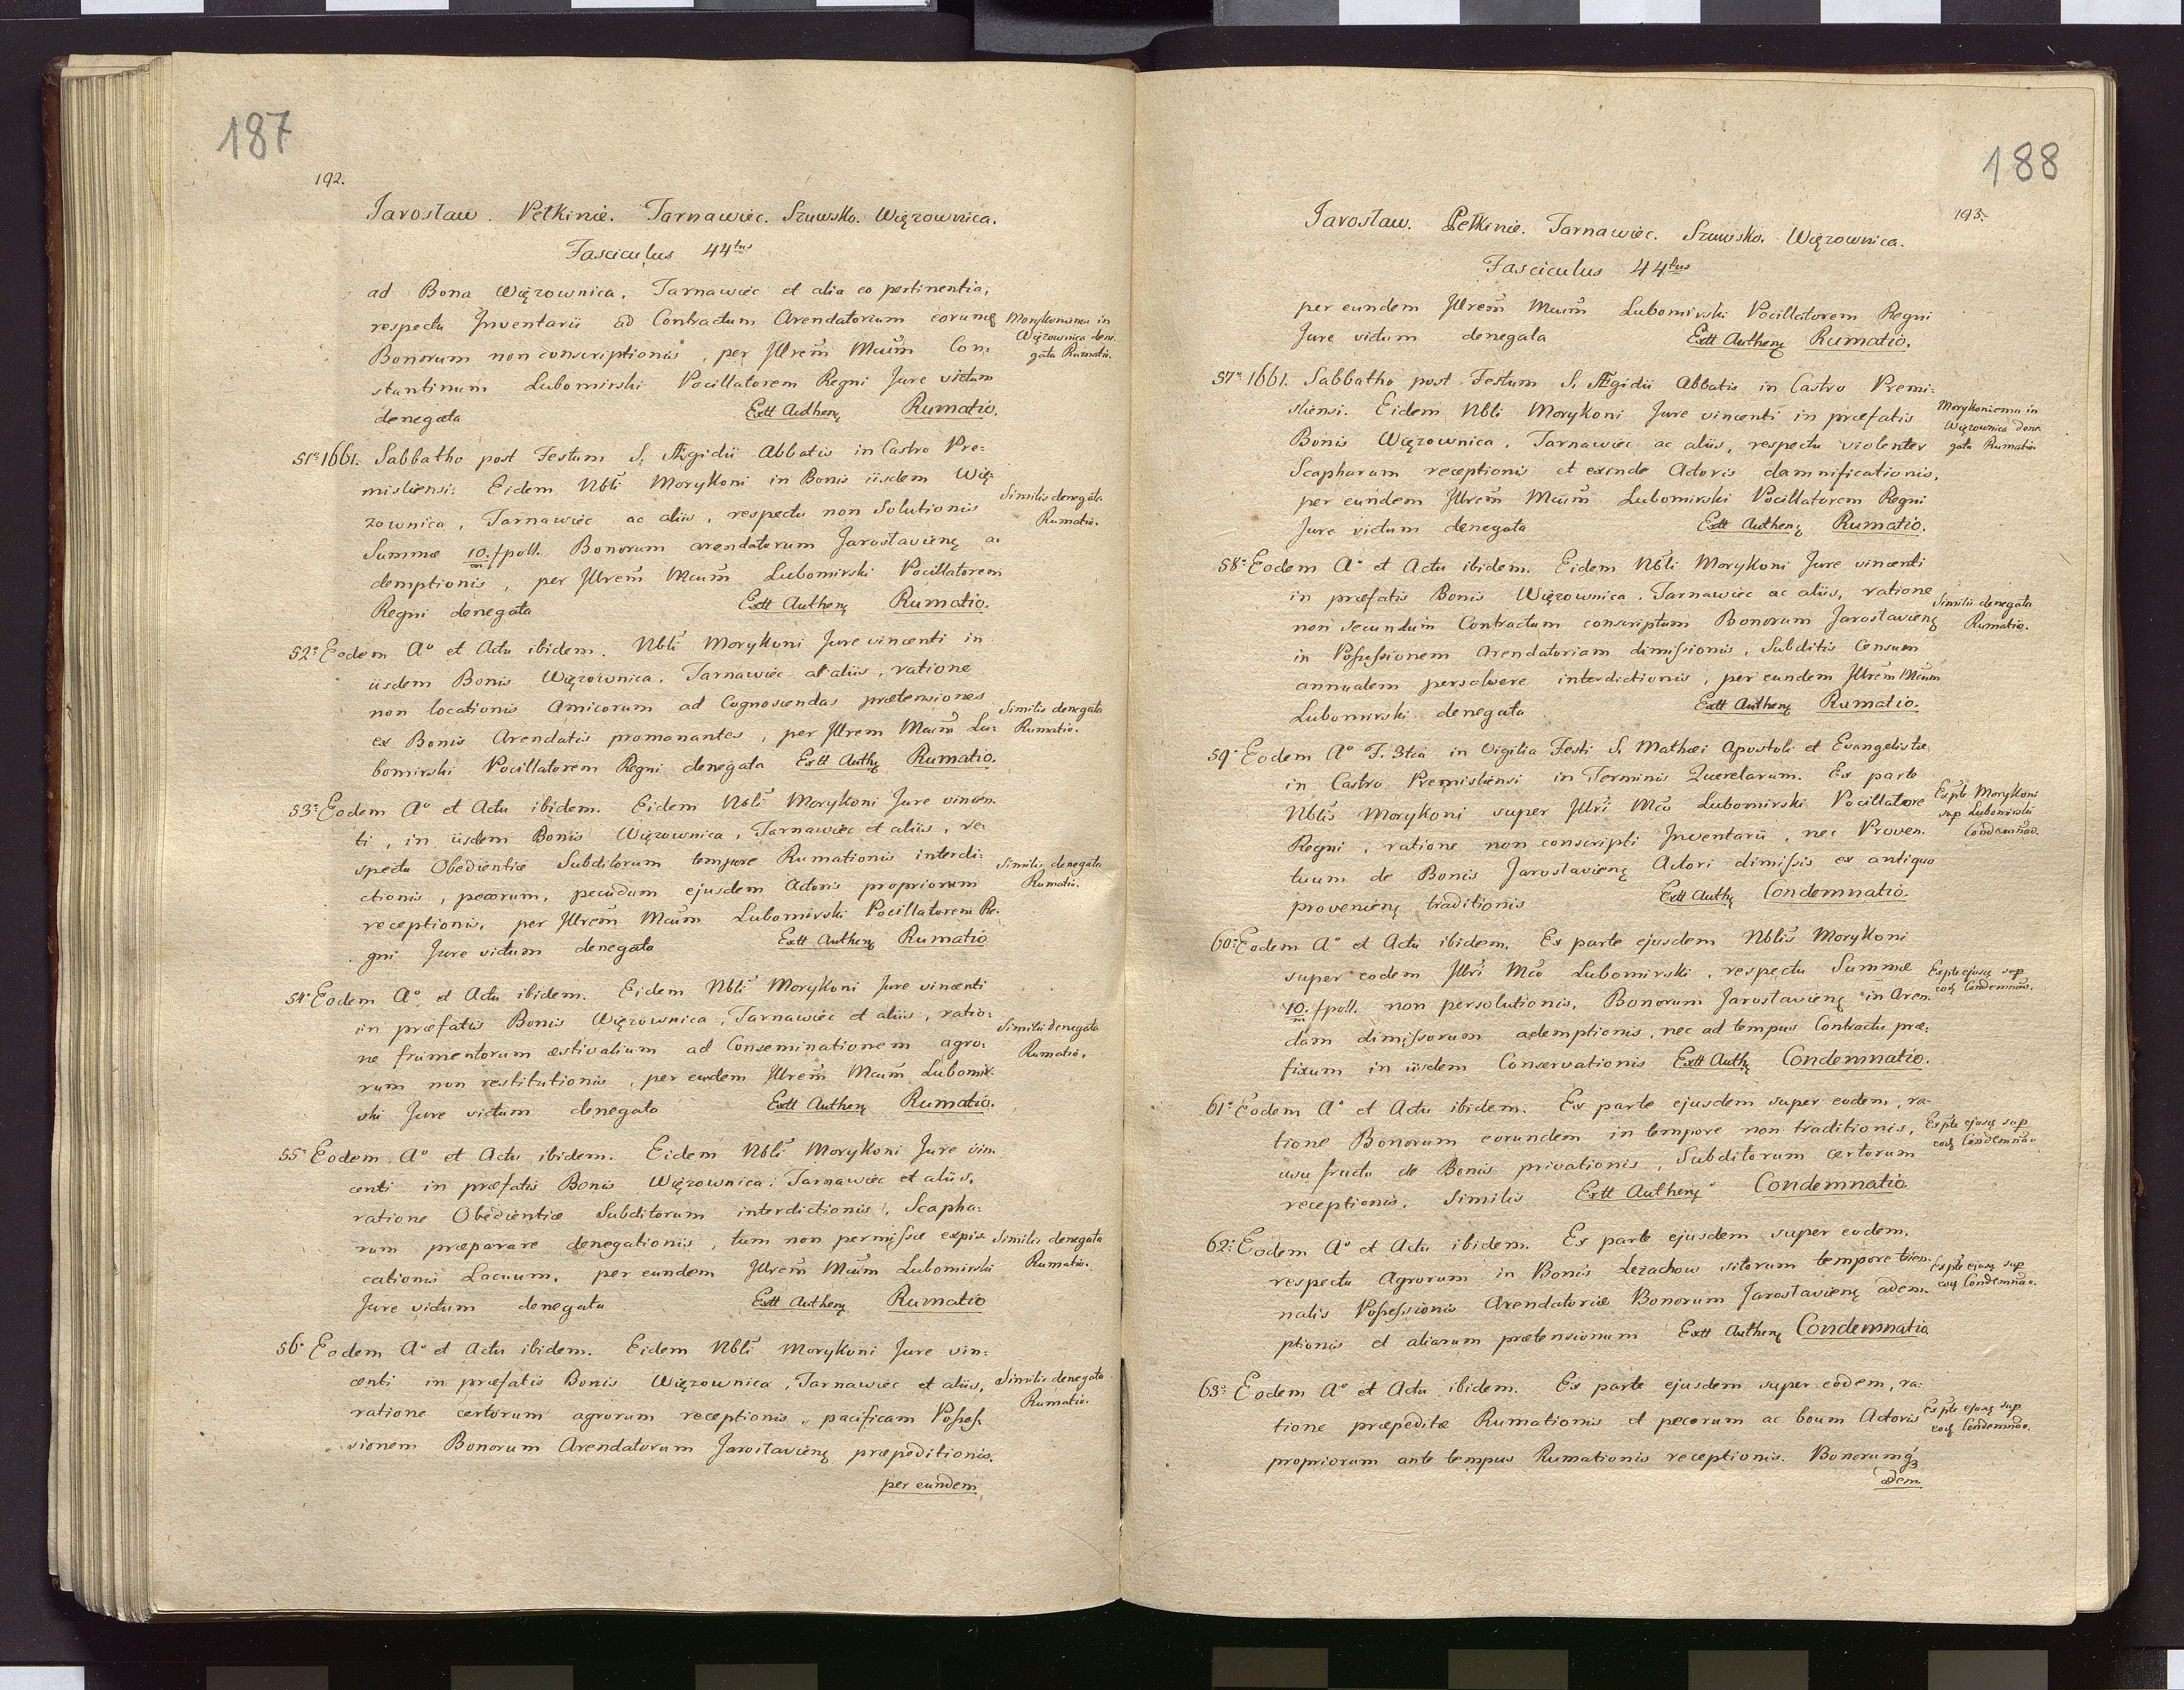 187
192.
Jarosław. Pełkinie. Tarnawiec. Szuwsko. Więzownica.
Fasciculus 44tus
ad Bona Więzownica, Tarnawiec et alia eo pertinentia,
respectu Inventarii ad Contractum Arendatorium eorumq
Bonorum non conscriptionis, per Illrem Mcum Con:
stantinum Lubomirski Pocillatorem Regni Jure victum
denegata Extt Authenq Rumatio.
Morykonomu in
Więzownica dene:
gata Rumatio.
51o 1661. Sabbatho post Festum S. Ægidii Abbatis in Castro Pre:
misliensi: Eidem Nbli Morykoni in Bonis iisdem Wię:
zownica, Tarnawiec ac aliis, respectu non Solutionis
Summæ 10/m fpoll. Bonorum arendatorum Jaroslavienq a:
demptionis, per Illrem Mcum Lubomirski Pocillatorem
Regni denegata Extt Authenq Rumatio.
Similis denegata
Rumatio.
52o Eodem Ao et Actu ibidem. Nbli Morykoni Jure vincenti in
iisdem Bonis Więzownica, Tarnawiec at aliis, ratione
non locationis Amicorum ad Cognoscendas prætensiones
ex Bonis Arendatis promanantes, per Illrem Mcum Lu:
bomirski Pocillatorem Regni denegata Extt Authq Rumatio.
Similis denegata
Rumatio.
53o Eodem Ao et Actu ibidem. Eidem Nbli Morykoni Jure vincen:
ti, in iisdem Bonis Więzownica, Tarnawiec et aliis, re:
spectu Obedientiæ Subditorum tempore Rumationis interdi:
ctionis, pecorum, pecudum ejusdem Actoris propriorum
receptionis, per Illrem Mcum Lubomirski Pocillatorem Re:
gni Jure victum denegata Extt Authenq Rumatio
Similis denegata
Rumatio.
54o Eodem Ao et Actu ibidem. Eidem Nbli Morykoni Jure vincenti
in præfatis Bonis Więzownica, Tarnawiec et aliis, ratio:
ne frumentorum æstivalium ad Conseminationem agro:
rum non restitutionis, per eundem Illrem Mcum Lubomir:
ski Jure victum denegata Extt Authenq Rumatio.
Similis denegata
Rumatio.
55o Eodem Ao et Actu ibidem. Eidem Nbli Morykoni Jure vin:
centi in præfatis Bonis Więzownica, Tarnawiec et aliis,
ratione Obedientiæ Subditorum interdictionis, Scapha:
rum præparare denegationis, tum non permissæ expis:
cationis Lacuum, per eundem Illrem Mcum Lubomirski
Jure victum denegata Extt Authenq Rumatio
Similis denegata
Rumatio.
56o Eodem Ao et Actu ibidem. Eidem Nbli Morykoni Jure vin:
centi in præfatis Bonis Więzownica, Tarnawiec et aliis,
ratione certorum agrorum receptionis, pacificam Posses:
sionem Bonorum Arendatorum Jaroslavienq præpeditionis.
per eundem
Similis denegata
Rumatio.
188
193.
Jarosław. Pełkinie. Tarnawiec. Szuwsko. Więzownica.
Fasciculus 44tus
per eundem Illrem Mcum Lubomirski Pocillatorem Regni
Jure victum denegata Extt Authenq Rumatio.
57o 1661. Sabbatho post Festum S. Ægidii Abbatis in Castro Premi:
sliensi. Eidem Nbli Morykoni Jure vincenti in præfatis
Bonis Więzownica, Tarnawiec ac aliis, respectu violenter
Scapharum receptionis et exinde Actoris damnificationis,
per eundem Illrem Mcum Lubomirski Pocillatorem Regni
Jure victum denegata Extt Authenq Rumatio.
Morykoniemu in
Więzownica dene:
gata Rumatio
58o Eodem Ao et Actu ibidem. Eidem Nbli Morykoni Jure vincenti
in præfatis Bonis Więzownica, Tarnawiec ac aliis, ratione
non secundum Contractum conscriptum Bonorum Jaroslavienq
in Possessionem Arendatoriam dimissionis, Subditis Censum
annualem persolvere interdictionis, per eundem Illrem Mcum
Lubomirski denegata Extt Authenq Rumatio.
Similis denegata
Rumatio.
59o Eodem Ao F. 3tia in Vigilia Festi S. Mathæi Apostoli et Evangelistæ,
in Castro Premisliensi in Terminis Querelarum. Ex parte
Nblis Morykoni super Illri Mco Lubomirski Pocillatore
Regni, ratione non conscripti Inventarii, nec Proven:
tuum de Bonis Jaroslavienq Actori dimissis ex antiquo
provenienq traditionis Extt Authq Condemnatio.
Ex pte Morykoni
sup Lubomirski
Condemnao.
60o Eodem Ao et Actu ibidem. Ex parte ejusdem Nblis Morykoni
super eodem Illri Mco Lubomirski, respectu Summæ
10/m fpoll. non persolutionis, Bonorum Jaroslavienq in Aren:
dam dimissorum ademptionis, nec ad tempus Contractu præ:
fixum in iisdem Conservationis Extt Authq Condemnatio.
Ex pte ejusq sup
eodq Condemnao.
61o Eodem Ao et Actu ibidem. Ex parte ejusdem super eodem, ra:
tione Bonorum eorundem in tempore non traditionis,
usu fructu de Bonis privationis, Subditorum certorum
receptionis. Similis Extt Authenq Condemnatio
Ex pte ejusq sup
eodq Condemnao
62o Eodem Ao et Actu ibidem. Ex parte ejusdem super eodem,
respectu Agrorum in Bonis Leżachow sitorum tempore trien:
nalis Possessionis Arendatoriæ Bonorum Jaroslavienq adem:
ptionis et aliarum prætensionum Extt Authenq Condemnatio
Ex pte ejusq sup
eodq Condemnao.
63o Eodem Ao et Actu ibidem. Ex parte ejusdem super eodem, ra:
tione præpeditæ Rumationis et pecorum ac boum Actoris
propriorum ante tempus Rumationis receptionis. Bonorumq3
adem:
Ex pte ejusq sup
eodq Condemnao.